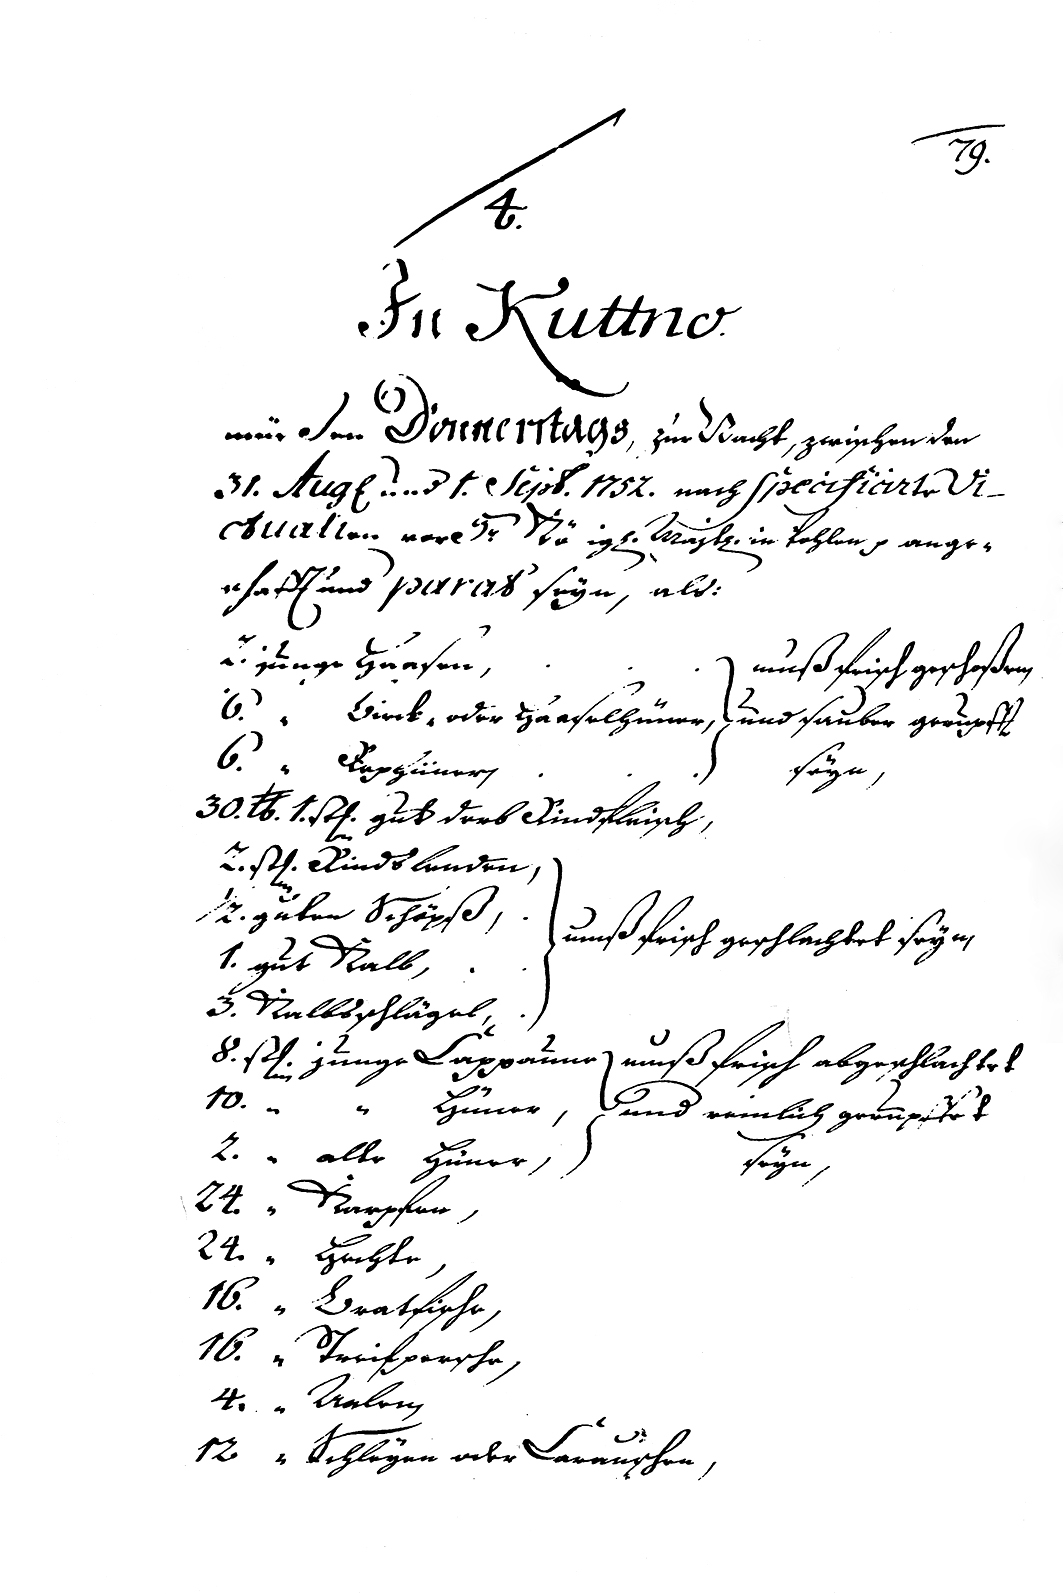 79.
4.
In Kuttno.
den Donnerstags, zur Nacht, zwischen den
31. Aug. und 1. Sept. 1752. nach specificirte Vi-
ctualien vor Sr. Königl. Majt. in Pohlen ange-
schafft und parat seyn, als:
2. junge Haasen, muß frisch geschoßen,
6. " Birck- oder Haaselhüner, und sauber gerupfft
6. " Rephüner, seyn,
30. lb. 1. stk. gut derb Rindfleisch,
2. stk. Rindslenden,
1/2. guten Schöpß,
1. gut Kalb, muß frisch geschlachtet seyn,
3. Kalbsschlägel,
8. stk. junge Cappaune muß frisch abgeschlachtet
10. " " Hüner, und reinlich gerupffet
2. " alte Hüner, seyn,
24. " Karpfen,
24. " Hechte,
16. " Bratfische,
16. " Streifpersche,
4. " Aale,
12 " Schleyen oder Carauschen,